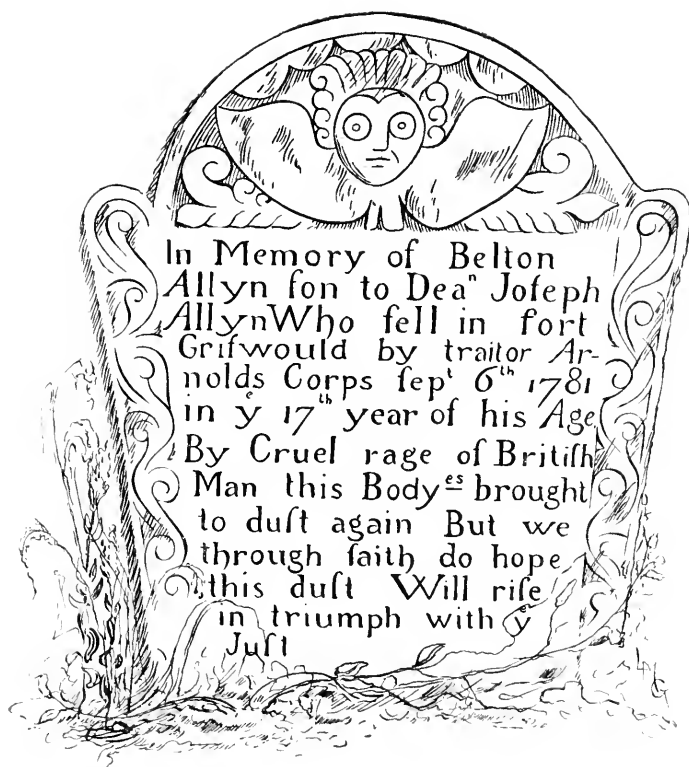 In Memory of Belton
Allyn ſon to Deaⁿ Joſeph
Allyn Who fell in fort
Griſwould by traitor Ar-
nolds Corps ſepᵗ 6ᵗʰ 1781
in yᵉ 17ᵗʰ year of his Age
By Cruel rage of Britiſh
Man this Bodyᵉˢ brought
to duſt again But we
through faith do hope
this duſt Will riſe
in triumph with yᵉ
Juſt